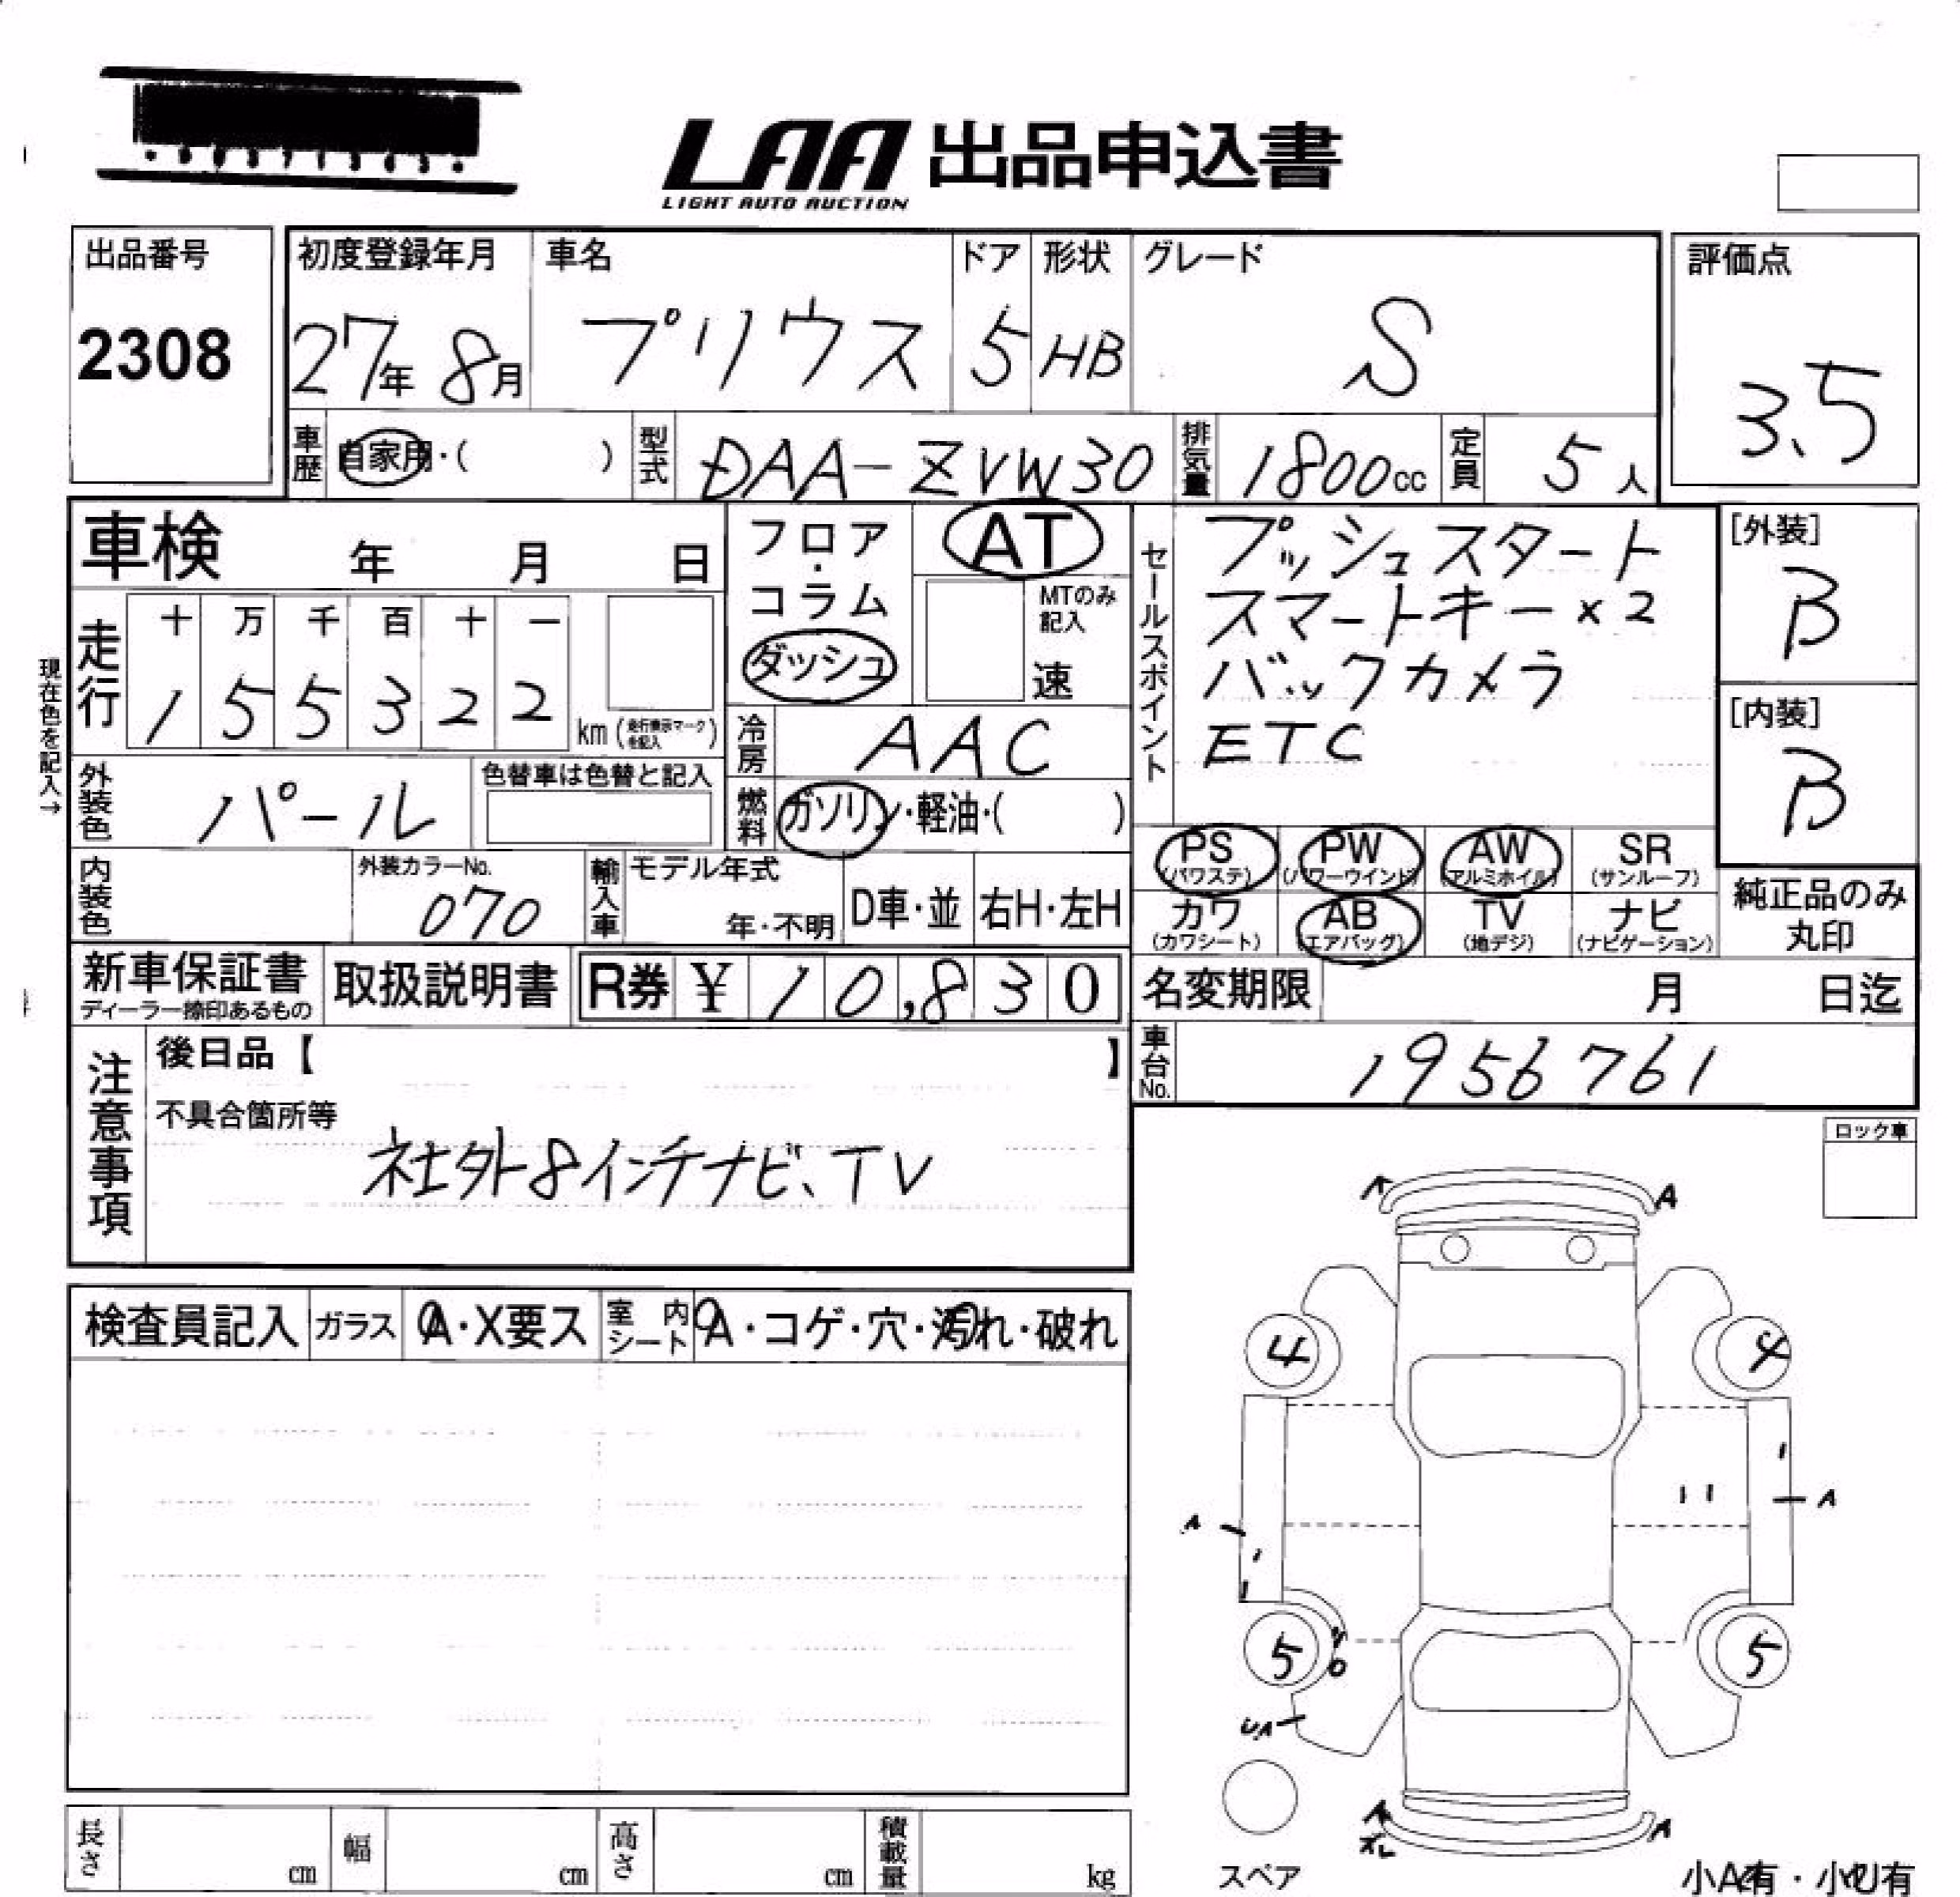 LAA 出品申込書
LIGHT AUTO AUCTION
出品番号
2308
初度登録年月
27年 8月
車名
プリウス
ドア
5
形状
HB
グレード
S
評価点
3.5
車歴
自家用・( )
型式
DAA-ZVW30
排気量
1800cc
定員
5人
車検 年 月 日
フロア・コラム
ダッシュ
AT
MTのみ記入
速
セールスポイント
プッシュスタート
スマートキー×2
バックカメラ
ETC
[外装]
B
[内装]
B
現在色を記入→
走行
十 万 千 百 十 一
1 5 5 3 2 2
km (走行表示マークを記入)
冷房
AAC
外装色
パール
色替車は色替と記入
燃料
ガソリン・軽油・( )
PS (パワステ)
PW (パワーウインド)
AW (アルミホイル)
SR (サンルーフ)
カワ (カワシート)
AB (エアバッグ)
TV (地デジ)
ナビ (ナビゲーション)
純正品のみ
丸印
内装色
外装カラーNo.
070
輸入車
モデル年式
年・不明
D車・並
右H・左H
新車保証書
ディーラー捺印あるもの
取扱説明書
R券 ¥10,830
名変期限 月 日迄
車台No.
1956761
注意事項
後日品【 】
不具合箇所等
社外8インチナビ、TV
ロック車
検査員記入
ガラス
A・X要ス
室内シート
A・コゲ・穴・汚れ・破れ
A
4
4
A
A
5
5
UA
A
スペア
長さ cm
幅 cm
高さ cm
積載量 kg
小A有・小U有